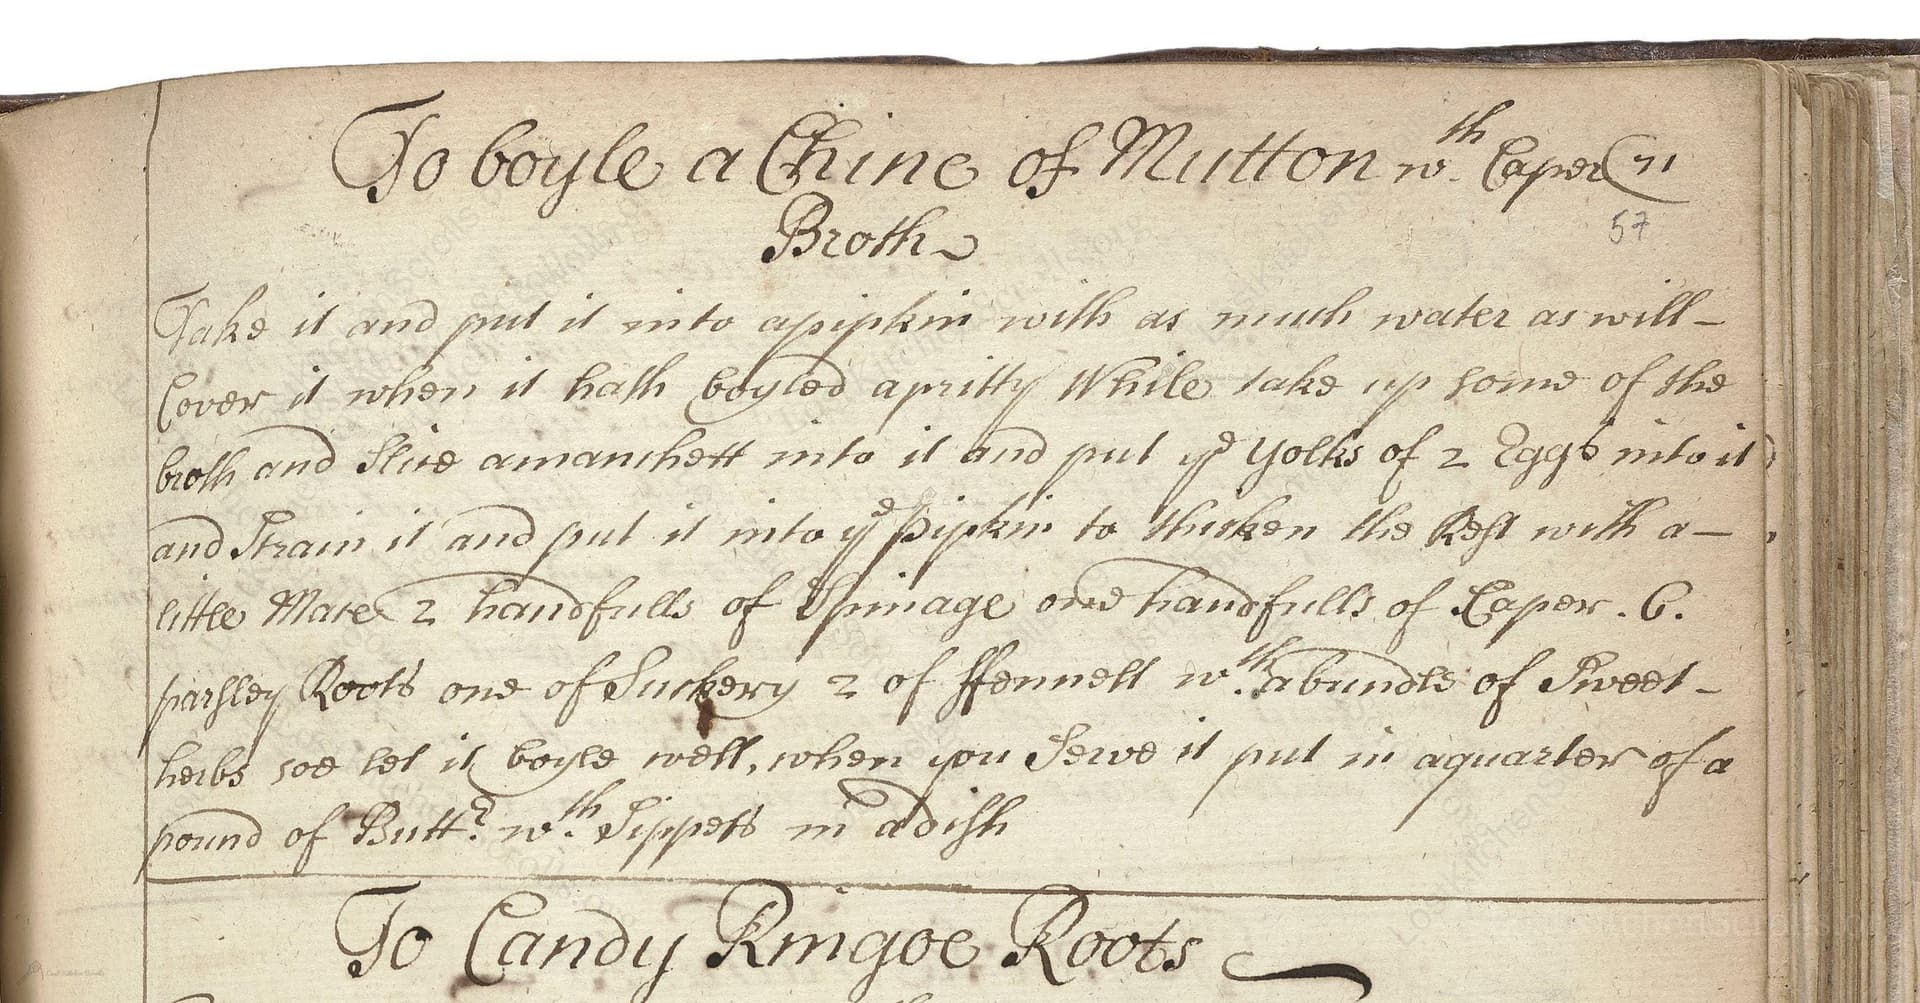 To boyle a Chine of Mutton wth Caper (71
57
Broth
Take it and put it into a pipkin with as much water as will
Cover it when it hath boyled a pritty While take up some of the
broth and Slice a manchett into it and put ye Yolks of 2 Eggs into it
and Strain it and put it into ye Pipkin to thicken the Rest with a
little Mace 2 handfulls of Spinage one handfulls of Caper. 6.
parsley Roots one of Suckery 2 of ffennell wth. a bundle of Sweet
herbs soe let it boyle well, when you Serve it put in a quarter of a
pound of Buttr. wth. Sippets in a dish
To Candy Ringoe Roots